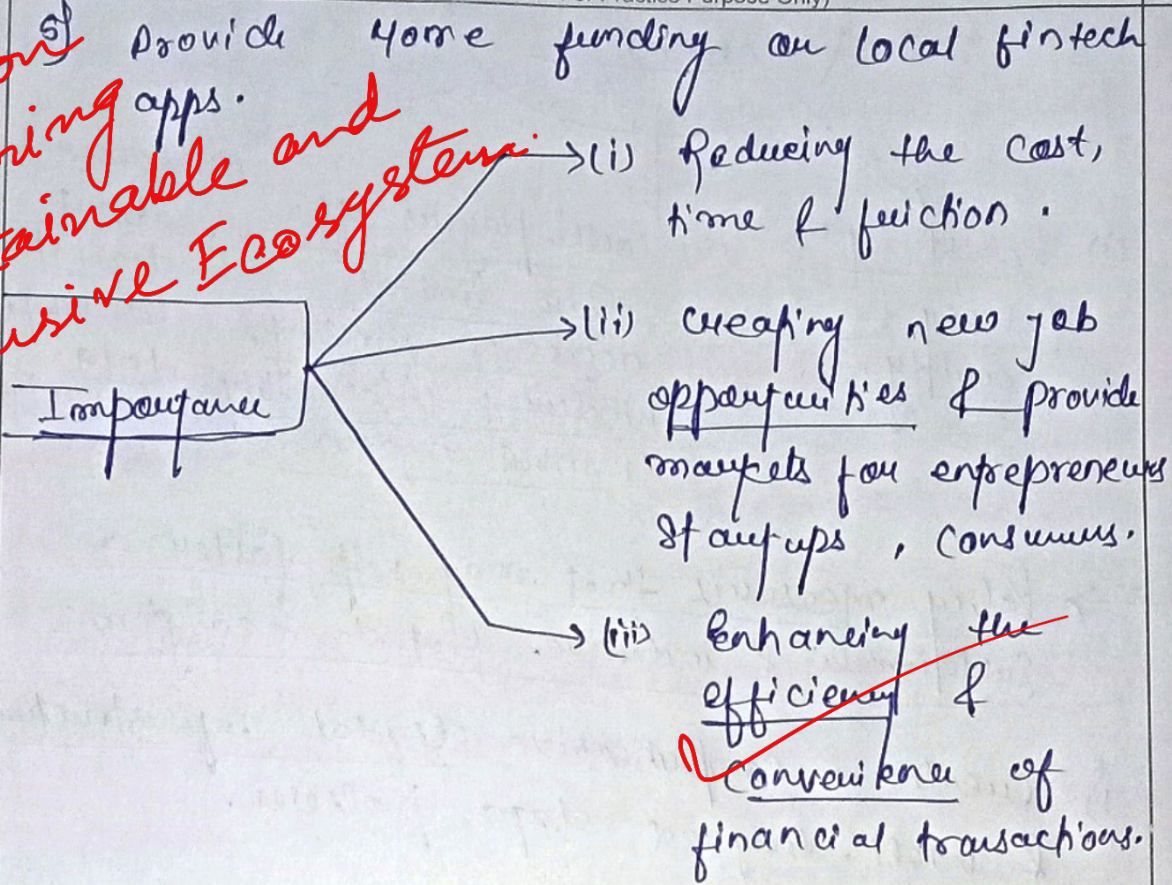 Practice Purpose Only)
5) Provide more funding on local fintech
apps.
and
Ecosystem.
Importance
(i) Reducing the cost,
time & friction.
(ii) creating new job
opportunities & provide
markets for entrepreneurs
startups, consumers.
(iii) Enhancing the
efficiency &
Convenience of
financial transactions.